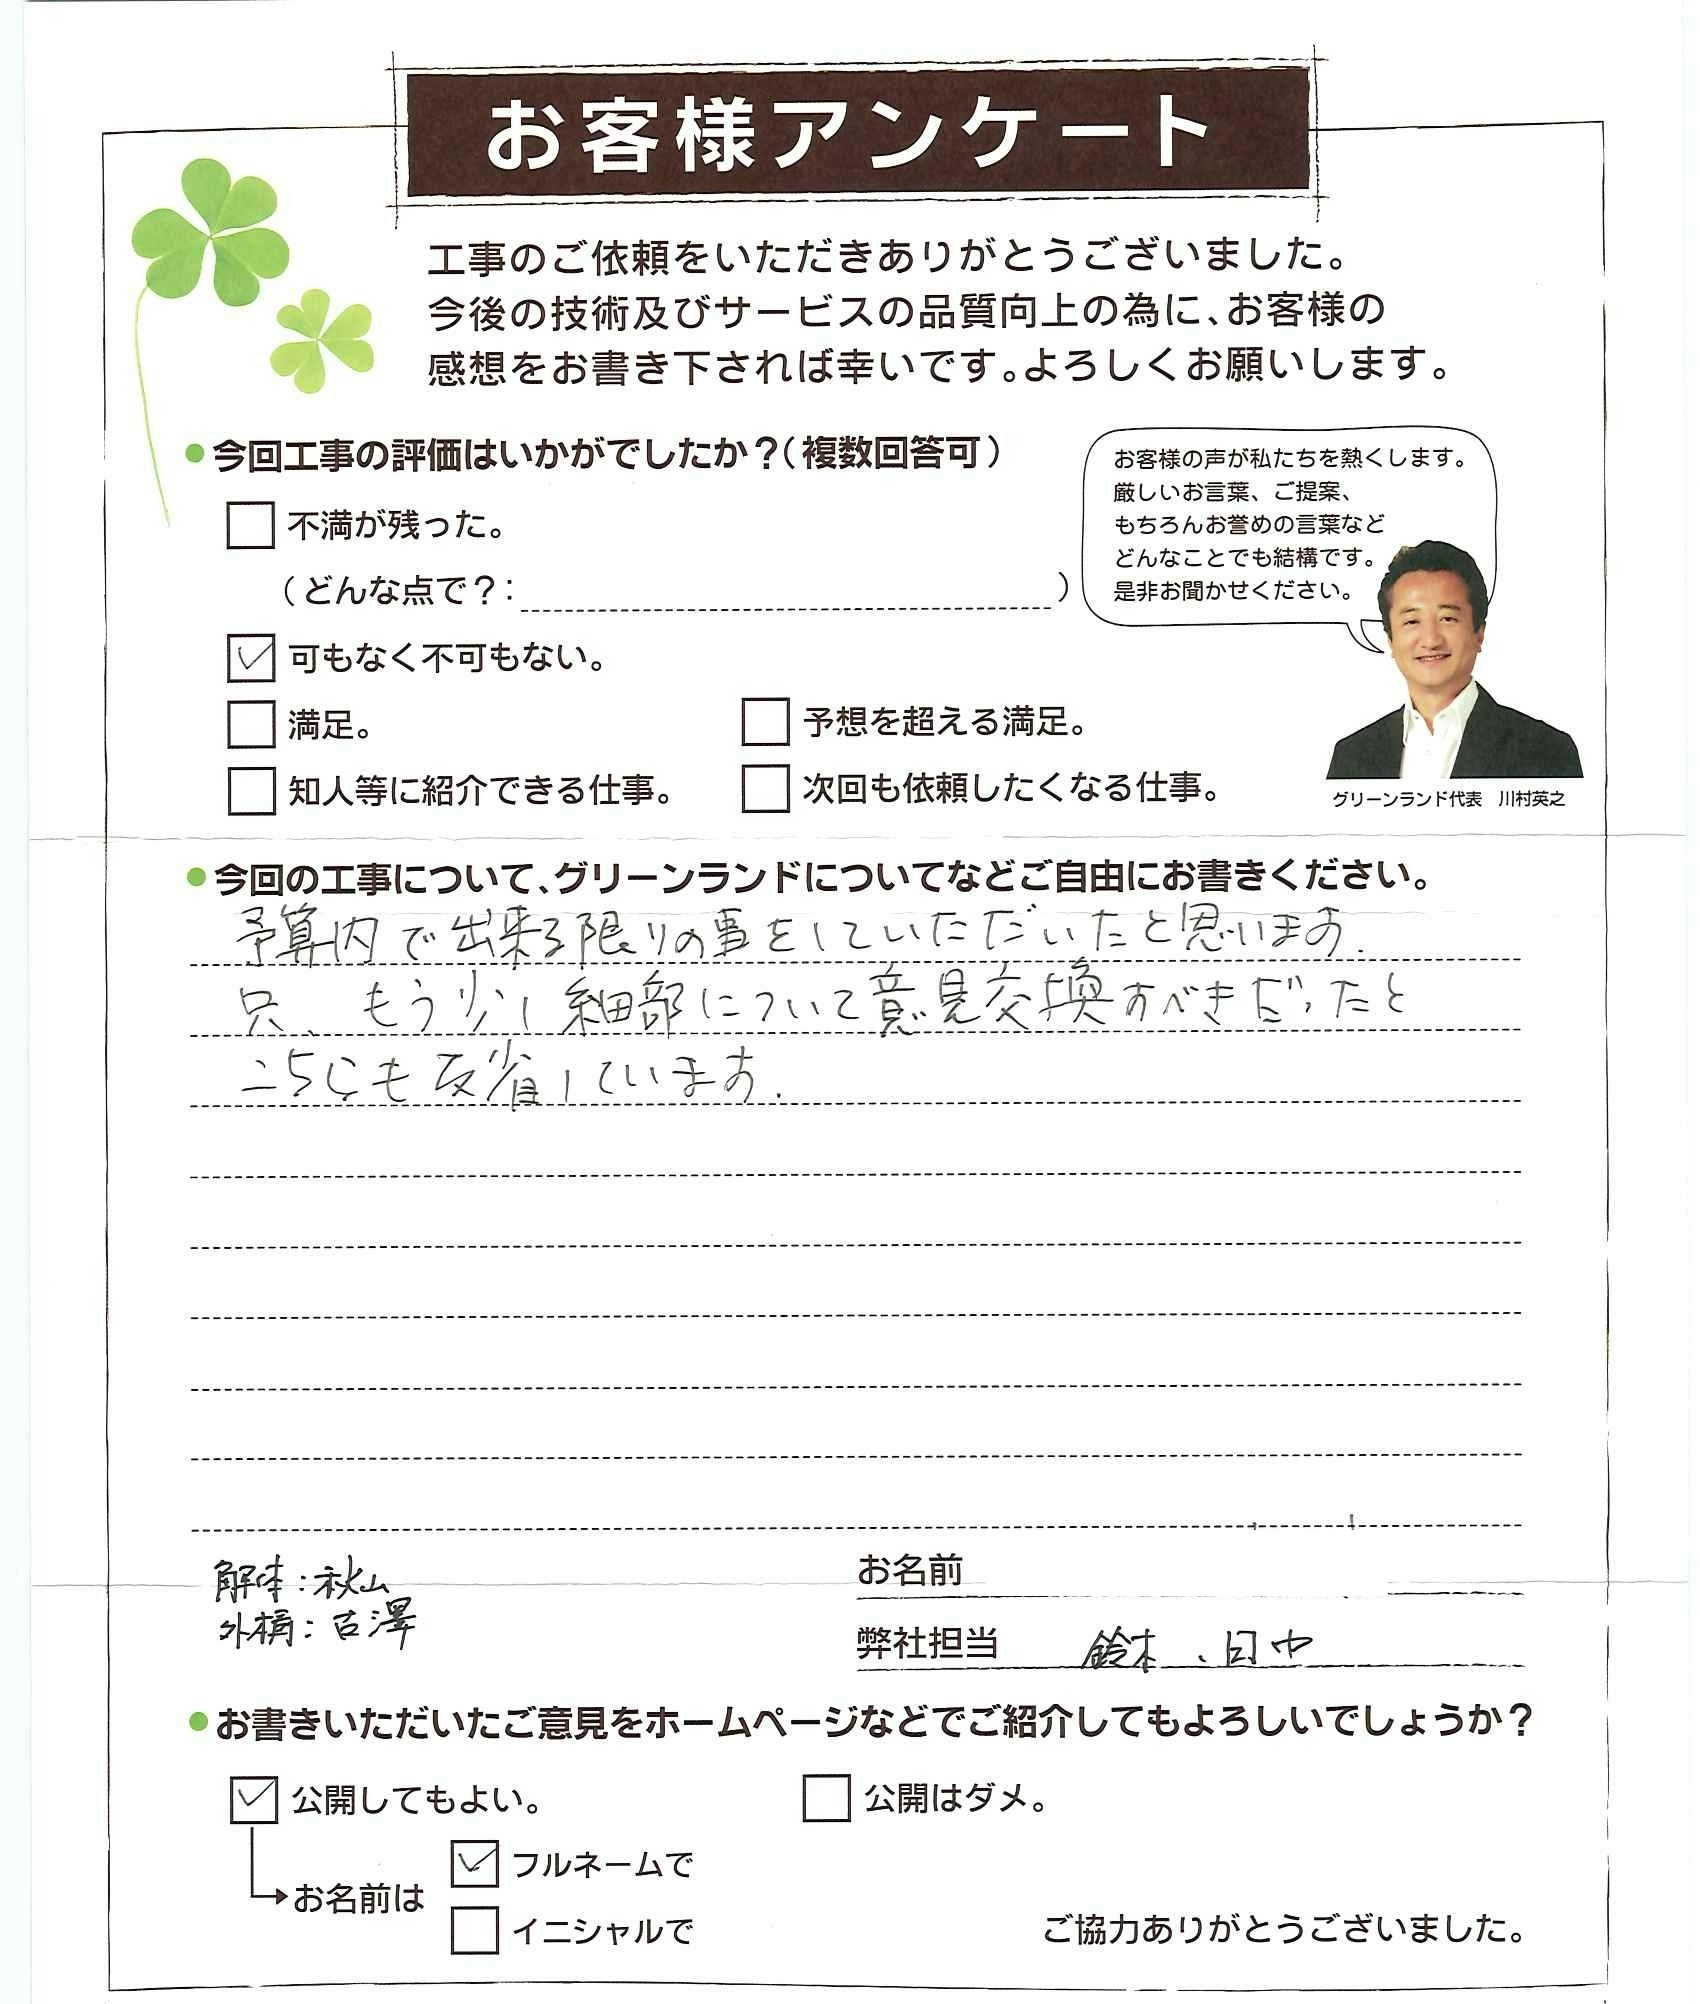 お客様アンケート
工事のご依頼をいただきありがとうございました。
今後の技術及びサービスの品質向上の為に、お客様の
感想をお書き下されば幸いです。よろしくお願いします。
●今回工事の評価はいかがでしたか？（複数回答可）
不満が残った。
（どんな点で？：　　　）
可もなく不可もない。
満足。
予想を超える満足。
知人等に紹介できる仕事。
次回も依頼したくなる仕事。
お客様の声が私たちを熱くします。
厳しいお言葉、ご提案、
もちろんお誉めの言葉など
どんなことでも結構です。
是非お聞かせください。
グリーンランド代表　川村英之
●今回の工事について、グリーンランドについてなどご自由にお書きください。
予算内で出来る限りの事をしていただいたと思います.
只、もう少し細部について意見交換すべきだったと
こちらも反省しています.
解体：秋山
外構：古澤
お名前
弊社担当　鈴木、田中
●お書きいただいたご意見をホームページなどでご紹介してもよろしいでしょうか？
公開してもよい。
公開はダメ。
お名前は
フルネームで
イニシャルで
ご協力ありがとうございました。